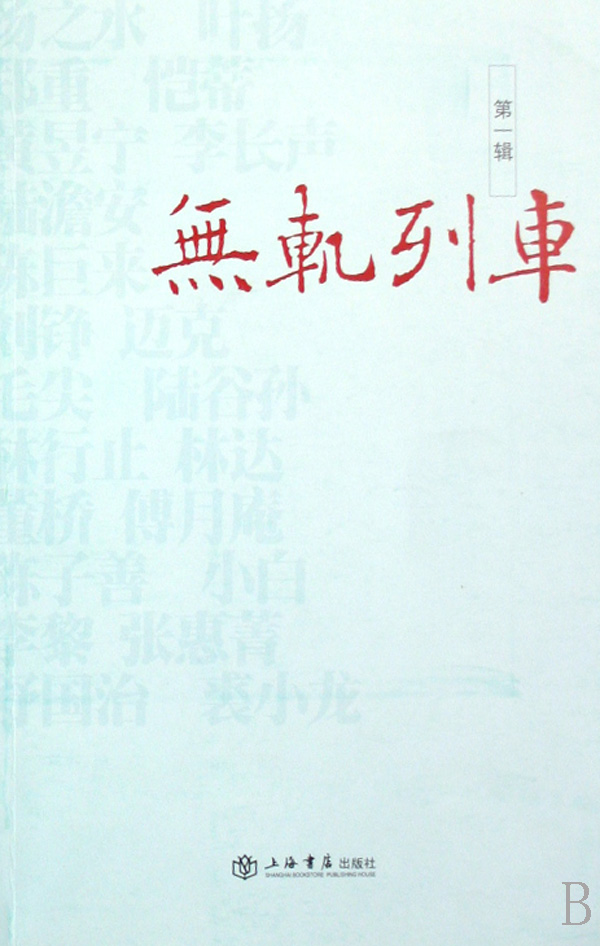 扬之水 叶扬
郑重 恺蒂
黄昱宁 李长声
陆澹安
陈巨来
刘铮 迈克
毛尖 陆谷孙
林行止 林达
董桥 傅月庵
陈子善 小白
李黎 张惠菁
舒国治 裘小龙
第一辑
無軌列車
上海書店出版社
SHANGHAI BOOKSTORE PUBLISHING HOUSE
B